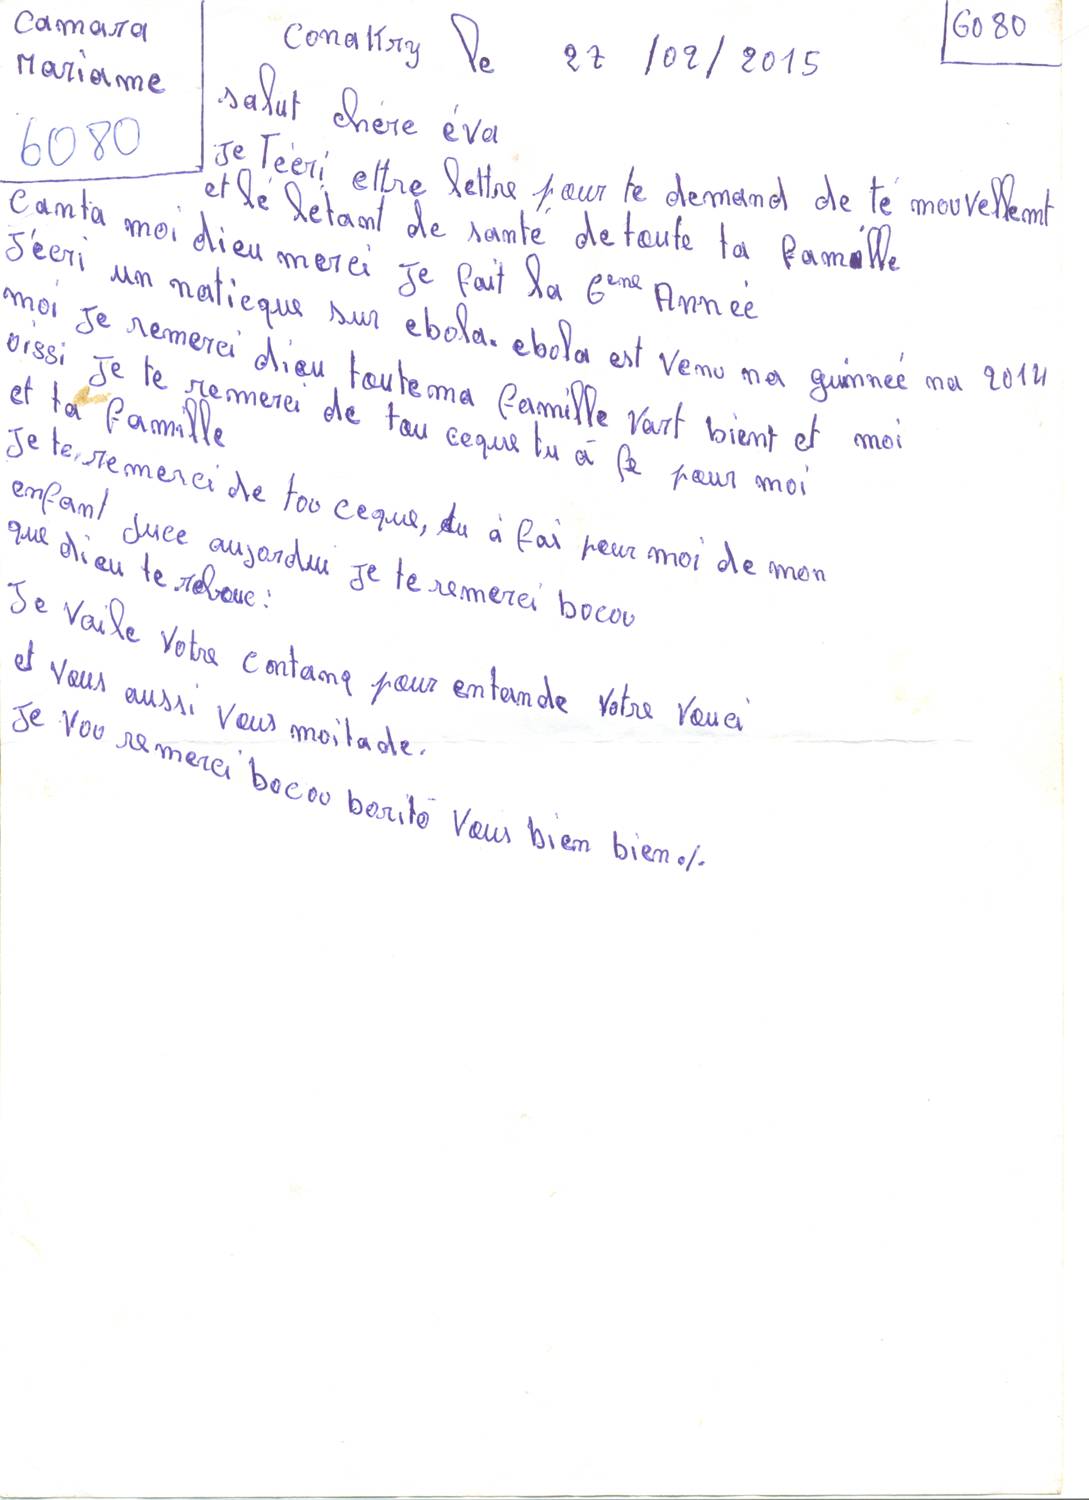 Camara
Mariame
6080
6080
Conakry le 27/02/2015
salut chère éva
Je Téeri ettre lettre pour te demand de té nouvellemt
et lé létant de santé de toute ta famille
Canta moi dieu merci Je fait la 6eme Anneé
J'éeri un naticque sur ebola. ebola est venu na guinneé na 2014
moi Je remerci dieu toute ma famille vart bient et moi
oissi Je te remerci de tou ceque tu à fe pour moi
et ta famille
Je te remerci de tou ceque, tu à fai peur moi de mon
enfant Juce aujordui Je te remerci bocou
que dieu te
Je vaile votre contanq pour entande votre vouci
et vous aussi vous moitade.
Je vou remerci bocou boritõ vous bien bien./.